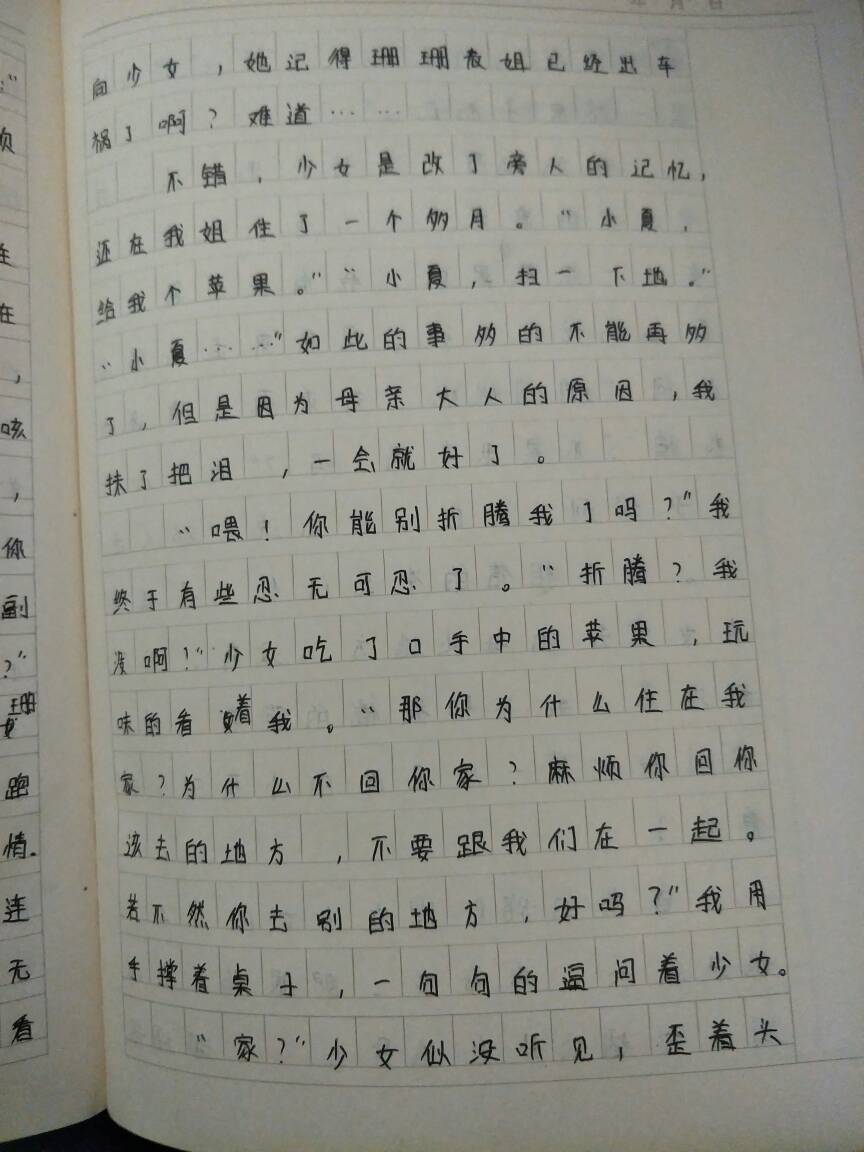 年 月 日
向少女，她记得珊珊表姐已经出车
祸了啊？难道……
不错，少女是改了旁人的记忆，
还在我姐住了一个多月。“小夏，
给我个苹果。”“小夏，扫一下地。”
“小夏……”如此的事多的不能再多
了，但是因为母亲大人的原因，我
抹了把泪，一会就好了。
“喂！你能别折腾我了吗？”我
终于有些忍无可忍了。“折腾？我
没啊？”少女吃了口手中的苹果，玩
味的看着我。“那你为什么住在我
家？为什么不回你家？麻烦你回你
该去的地方，不要跟我们在一起。
若不然你去别的地方，好吗？”我用
手撑着桌子，一句句的逼问着少女。
“家？”少女似没听见，歪着头
：”
在
，
咳
，
你
副
？”
珊
跑
情。
连
无
看